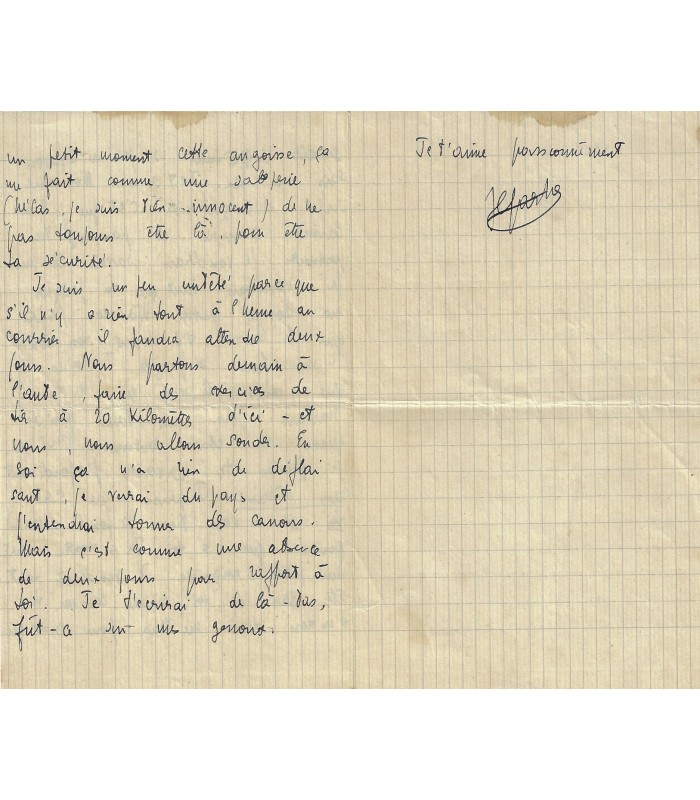 un petit moment cette angoisse, ça
me fait comme une saloperie
(hélas, je suis bien innocent) de ne
pas toujours être là, pour être
ta sécurité.
Je suis un peu embêté parce que
s'il n'y a rien tout à l'heure au
courrier il faudra attendre deux
jours. Nous partons demain à
l'aube, faire des exercices de
tir à 20 kilomètres d'ici - et
nous, nous allons sonder. En
soi ça n'a rien de déplai
sant, je verrai du pays et
j'entendrai tonner des canons.
Mais c'est comme une absence
de deux jours par rapport à
toi. Je t'écrirai de là-bas,
fût-ce sur mes genoux.
Je t'aime passionnément